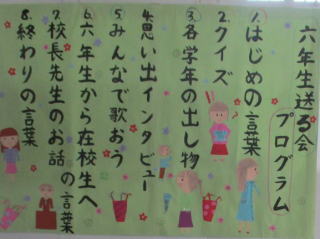 六年生送る会
プログラム
1.はじめの言葉
2.クイズ
3.各学年の出し物
4.思い出インタビュー
5.みんなで歌おう
6.六年生から在校生へ
の言葉
7.校長先生のお話
8.終わりの言葉